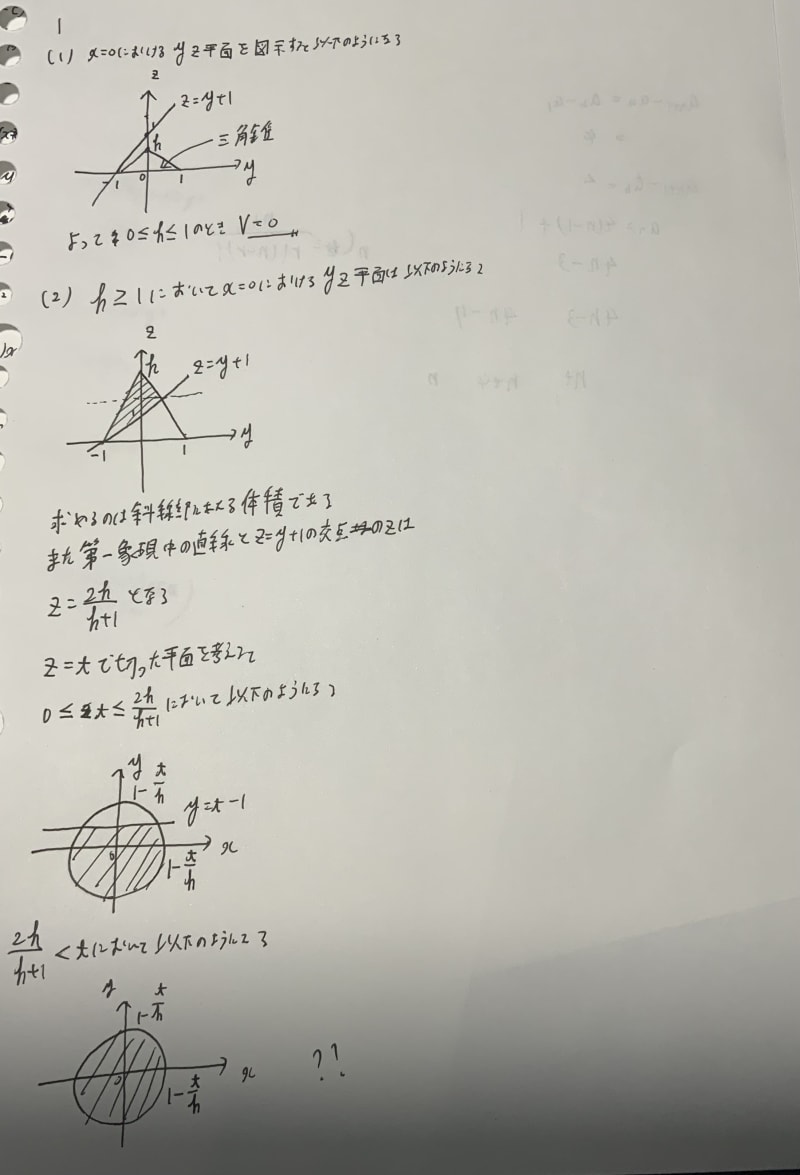 1
(1) x=0における yz平面を図示すると以下のようになる
z
z=y+1
h
三角錐
-1 0 1 y
よって 0≤h≤1のとき V=0
(2) h≥1において x=0における yz平面は以下のようになる
z
h
z=y+1
-1 1 y
求めるのは斜線部分の体積である
また第一象現中の直線と z=y+1の交点のzは
z=2h/(h+1) となる
z=tで切った平面を考えて
0≤t≤2h/(h+1) において以下のようになる
y
1-t/h
y=t-1
0 x
1-t/h
2h/(h+1) <tにおいて以下のようになる
y
1-t/h
0 x
1-t/h
??